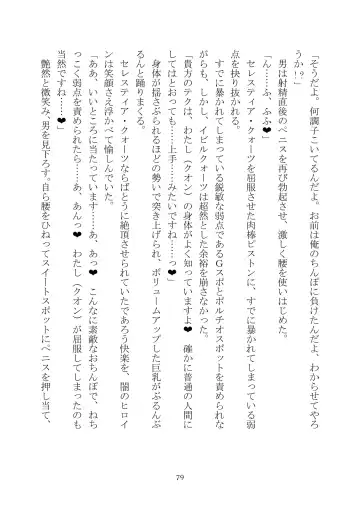 「そうだよ。何調子こいてるんだよ。お前は俺のちんぽに負けたんだよ、わからせてやろ
うか?!」
　男は射精直後のペニスを再び勃起させ、激しく腰を使いはじめた。
「ん……ふ、ふふ♥」
　セレスティア・クォーツを屈服させた肉棒ピストンに、すでに暴かれてしまっている弱
点を抉り抜かれる。
　すでに暴かれてしまっている鋭敏な弱点であるGスポとポルチオスポットを責められな
がらも、しかし、イビルクォーツは超然とした余裕を崩さなかった。
「貴方のテクは、わたし(クオン)の身体がよく知っていますよ♥　確かに普通の人間に
してはとおっても……上手……みたいですね……っ♥」
　身体が揺さぶられるほどの勢いで突き上げられ、ボリュームアップした巨乳がぶるんぶ
るんと踊りまくる。
　セレスティア・クォーツならばとうに絶頂させられていたであろう快楽を、闇のヒロイ
ンは笑顔さえ浮かべて愉しんでいた。
「ああ、いいところに当たっています……あ、あっ♥　こんなに素敵なおちんぽで、ねち
っこく弱点を責められたら……あ、あんっ♥　わたし(クオン)が屈服してしまったのも
当然ですね……♥」
　艶然と微笑み、男を見下ろす。自ら腰をひねってスイートスポットにペニスを押し当て、
79